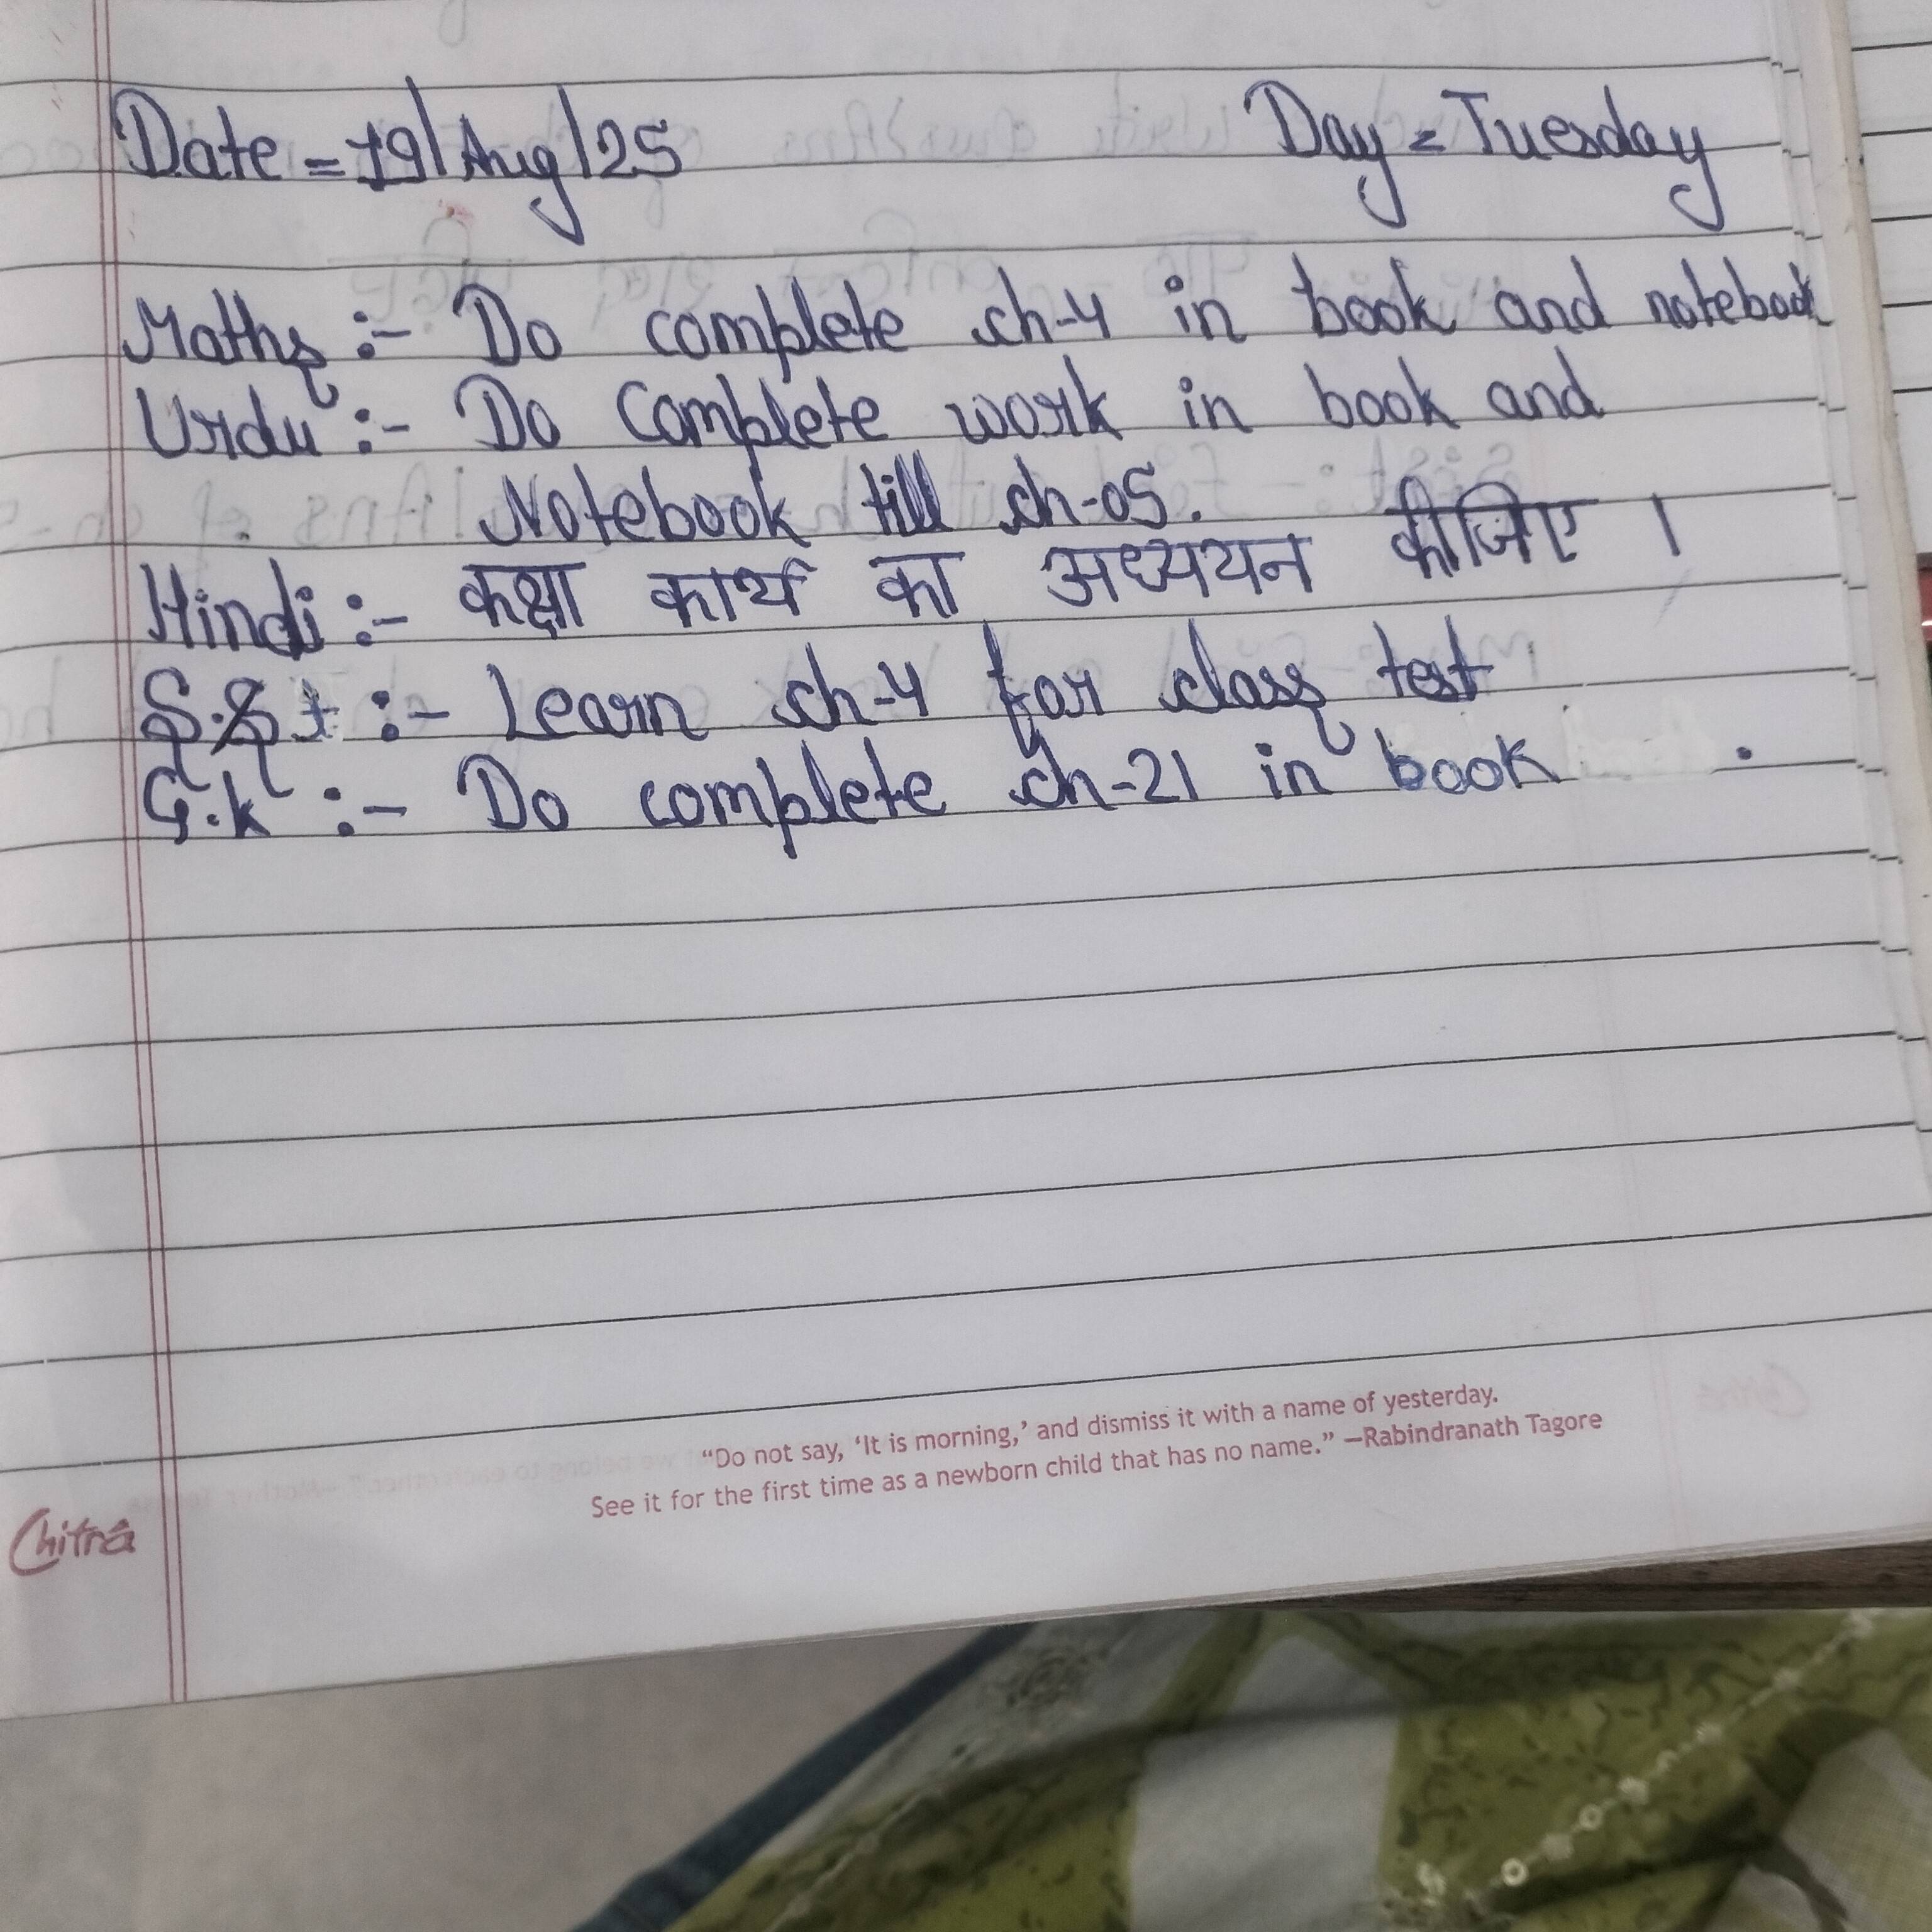 Date = 19/Aug/25 Day = Tuesday
Maths :- Do complete ch-4 in book and notebook
Urdu :- Do Complete work in book and
Notebook till ch-05.
Hindi :- कक्षा कार्य का अध्ययन कीजिए ।
S.St :- Learn ch-4 for class test
G.k :- Do complete ch-21 in book .
“Do not say, ‘It is morning,’ and dismiss it with a name of yesterday.
See it for the first time as a newborn child that has no name.” —Rabindranath Tagore
Chitra